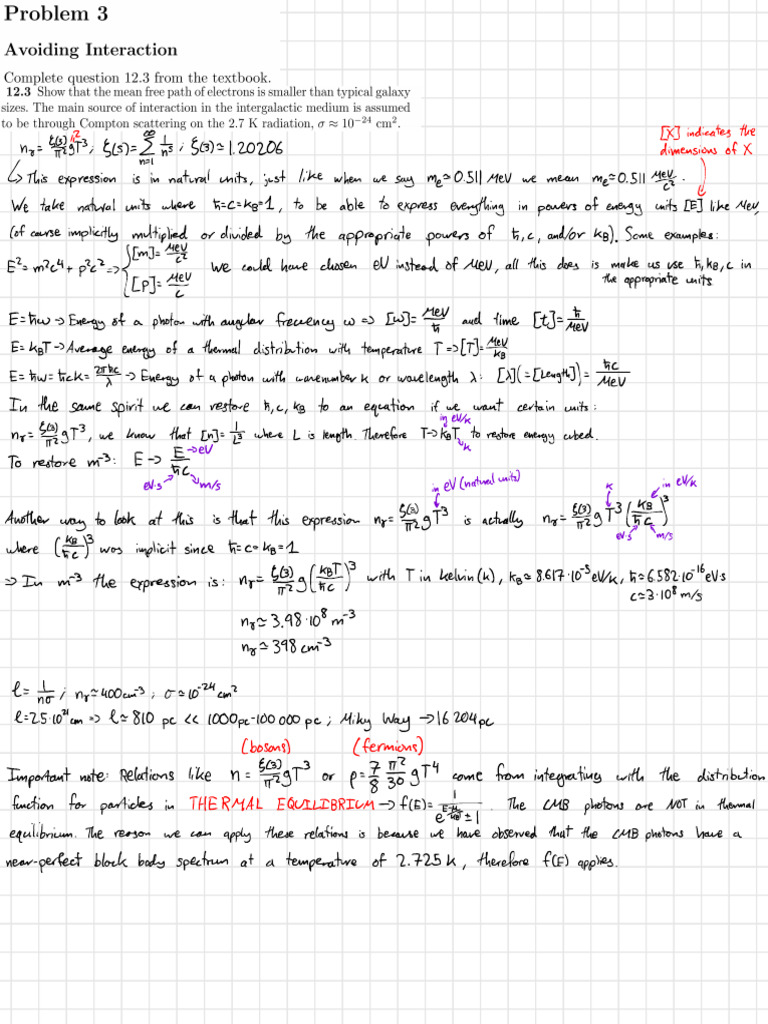 Problem 3
Avoiding Interaction
Complete question 12.3 from the textbook.
12.3 Show that the mean free path of electrons is smaller than typical galaxy
sizes. The main source of interaction in the intergalactic medium is assumed
to be through Compton scattering on the 2.7 K radiation, σ ≈ 10⁻²⁴ cm².
[X] indicates the
dimensions of X
nᵧ = ξ(3)/π² gT³ ; ξ(s) = ∑_{n=1}^{∞} 1/nˢ ; ξ(3) ≃ 1.20206
↳ This expression is in natural units, just like when we say mₑ ≃ 0.511 MeV we mean mₑ ≃ 0.511 MeV/c².
We take natural units where ħ=c=k_B=1, to be able to express everything in powers of energy units [E] like MeV,
(of course implicitly multiplied or divided by the appropriate powers of ħ, c, and/or k_B). Some examples:
E² = m²c⁴ + p²c² => { [m] = MeV/c² [p] = MeV/c we could have chosen eV instead of MeV, all this does is make us use ħ, k_B, c in
the appropriate units
E = ħω → Energy of a photon with angular frecuency ω => [ω] = MeV/ħ and time [t] = ħ/MeV
E = k_BT → Average energy of a thermal distribution with temperature T => [T] = MeV/k_B
E = ħω = ħck = 2πħc/λ → Energy of a photon with wavenumber k or wavelength λ: [λ] (=[Length]) = ħc/MeV
In the same spirit we can restore ħ, c, k_B to an equation if we want certain units:
in eV/K
nᵧ = ξ(3)/π² gT³, we know that [n] = 1/L³ where L is length. Therefore T → k_BT to restore energy cubed.
K
To restore m⁻³: E → E/ħc
→ eV
eV·s m/s
in eV (natural units) K in eV/K
Another way to look at this is that this expression nᵧ = ξ(3)/π² gT³ is actually nᵧ = ξ(3)/π² g T³ (k_B/ħc)³
eV·s m/s
where (k_B/ħc)³ was implicit since ħ=c=k_B=1
=> In m⁻³ the expression is: nᵧ = ξ(3)/π² g (k_BT/ħc)³ with T in kelvin (K), k_B ≃ 8.617·10⁻⁵ eV/K, ħ ≃ 6.582·10⁻¹⁶ eV·s
c ≃ 3·10⁸ m/s
nᵧ ≃ 3.98·10⁸ m⁻³
nᵧ ≃ 398 cm⁻³
ℓ = 1/nσ ; nᵧ ≃ 400 cm⁻³ ; σ ≃ 10⁻²⁴ cm²
ℓ = 2.5·10²¹ cm => ℓ ≃ 810 pc << 1000pc-100 000 pc ; Milky Way → 16 204 pc
(bosons) (fermions)
Important note: Relations like n = ξ(3)/π² gT³ or ρ = 7/8 π²/30 gT⁴ come from integrating with the distribution
function for particles in THERMAL EQUILIBRIUM → f(E) = 1/(e^{(E-μ)/k_BT} ± 1). The CMB photons are NOT in thermal
equilibrium. The reason we can apply these relations is because we have observed that the CMB photons have a
near-perfect black body spectrum at a temperature of 2.725 K, therefore f(E) applies.